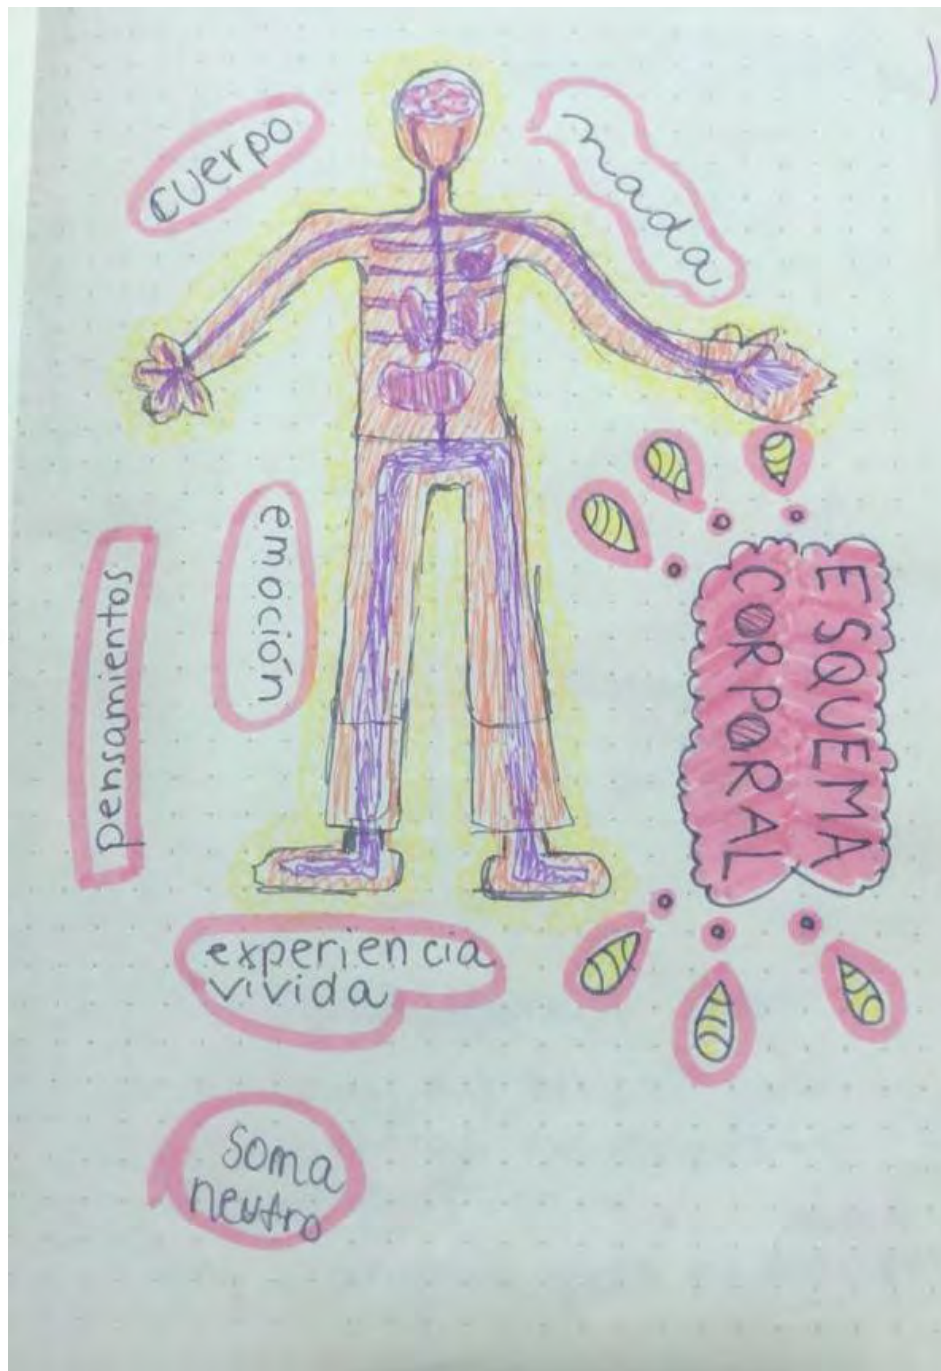 cuerpo
nada
emoción
pensamientos
ESQUEMA
CORPORAL
experiencia
vivida
soma
neutro